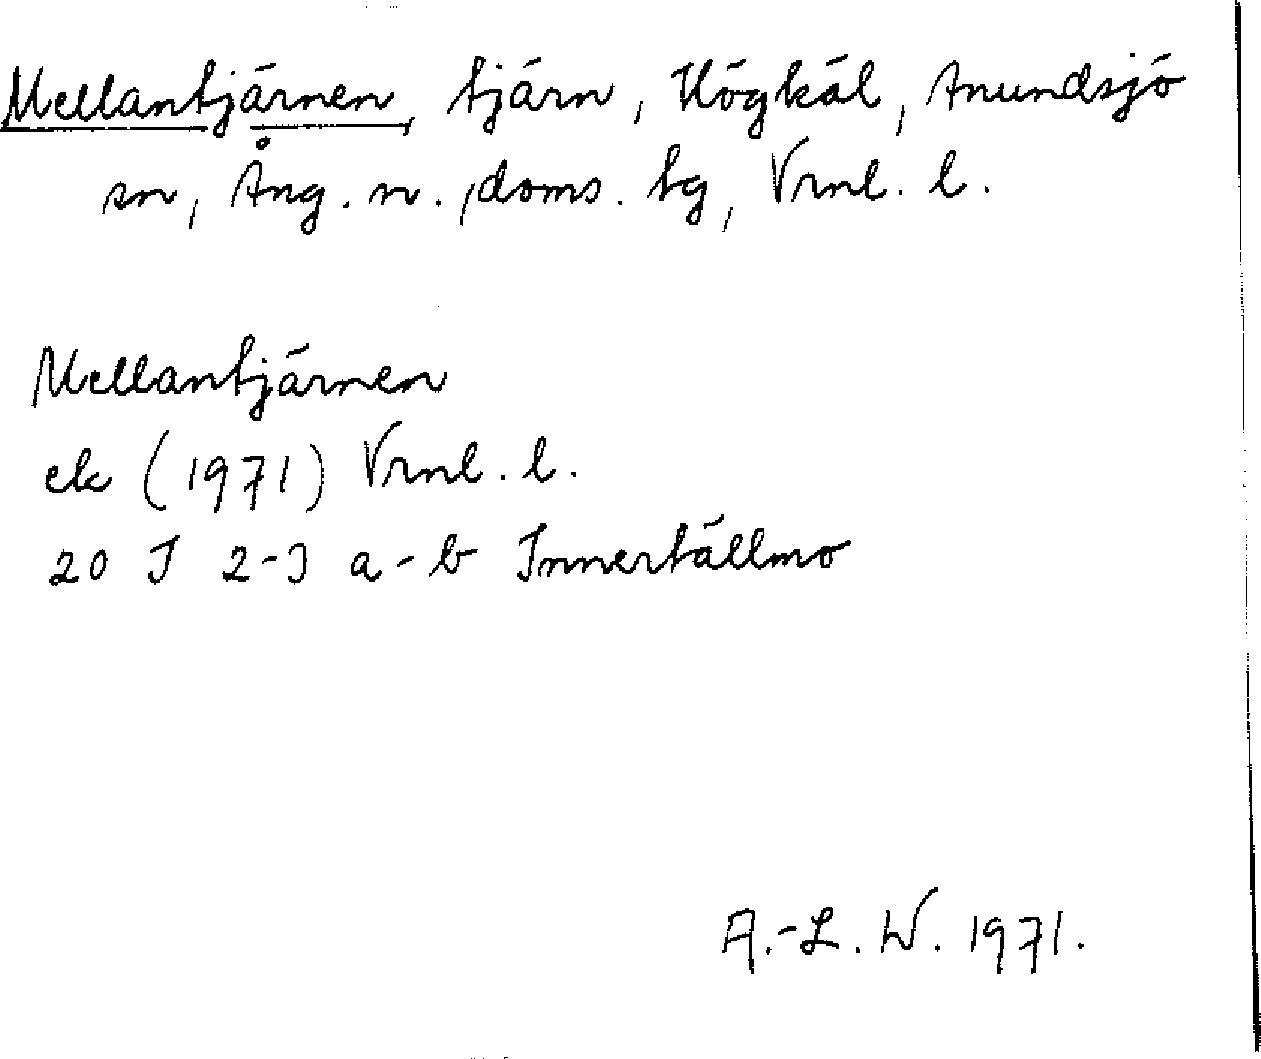 Mellantjärnen, tjärn, Högkål, Anundsjö
sn, Ång. n., doms. tg, Vrnl. l.
Mellantjärnen
ek (1971) Vrnl. l.
20 I 2-3 a-b Innertällmo
A.-L. W. 1971.